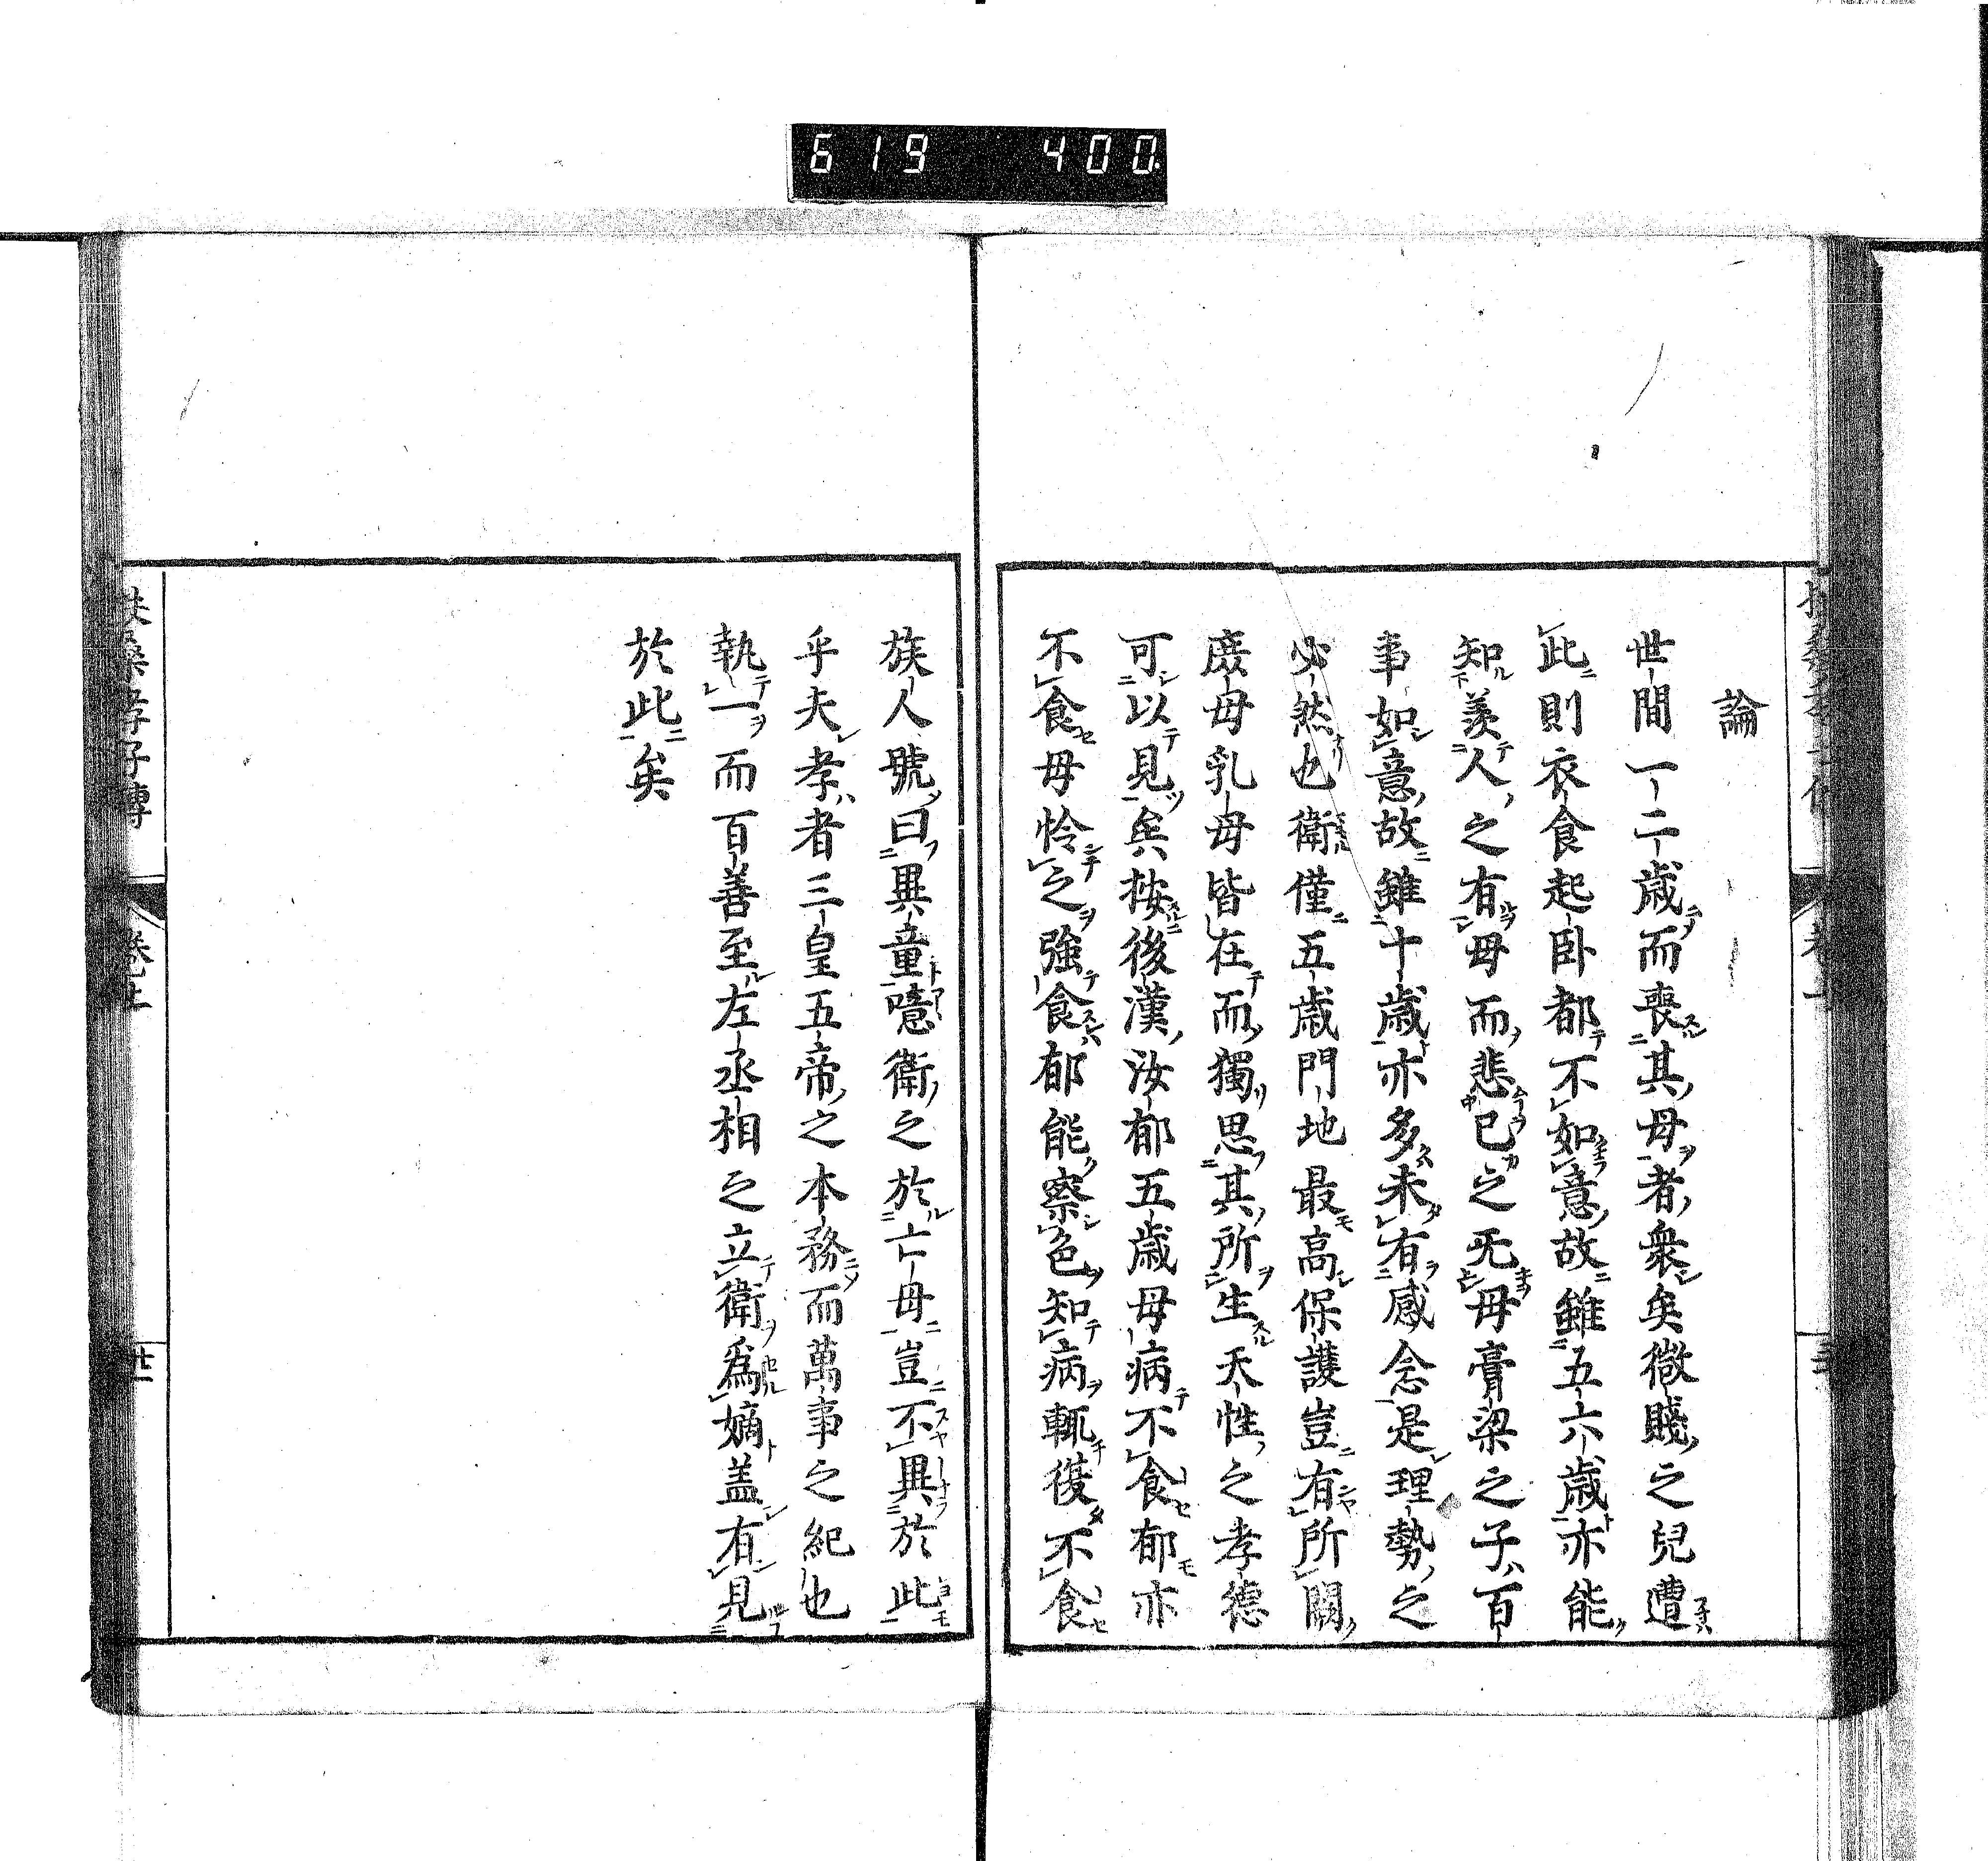 619 400.
論
世間一二歳而喪其母者衆矣微賤之兒遭
此則衣食起臥都不如意故雖五六歳亦能
知羨人之有母而悲已之旡母膏粱之子百
事如意故雖十歳亦多未有感念是理勢之
必然也衛僅五歳門地最高保護豈有所闕
庶母乳母皆在而獨思其所生天性之孝德
可以見矣按後漢汝郁五歳母病不食郁亦
不食母怜之強食郁能察色知病輒復不食
族人號曰異童噫衛之於亡母豈不異於此
乎夫孝者三皇五帝之本務而萬事之紀也
執一而百善至左丞相之立衛爲嫡盖有見
於此矣
扶桑孝子傳 卷上 廿一